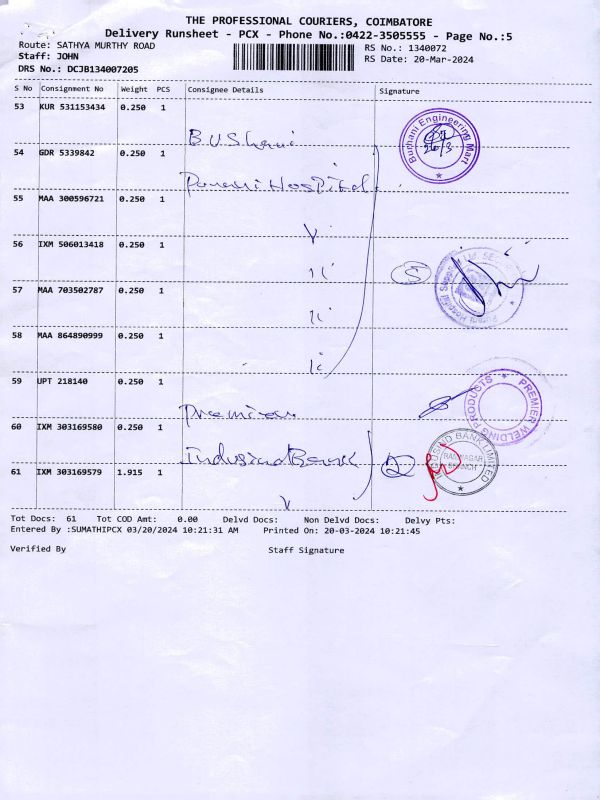 THE PROFESSIONAL COURIERS, COIMBATORE
Delivery Runsheet - PCX - Phone No.:0422-3505555 - Page No.:5
Route: SATHYA MURTHY ROAD RS No.: 1340072
Staff: JOHN RS Date: 20-Mar-2024
DRS No.: DCJB134007205
S No Consignment No Weight PCS Consignee Details Signature
53 KUR 531153434 0.250 1
Burhani Engineering Mart
54 GDR 5339842 0.250 1
Hospital
55 MAA 300596721 0.250 1
56 IXM 506013418 0.250 1
5
57 MAA 703502787 0.250 1
58 MAA 864890999 0.250 1
59 UPT 218140 0.250 1
PREMIER WELDING PRODUCTS
60 IXM 303169580 0.250 1
Indusind Bank 2
61 IXM 303169579 1.915 1
Tot Docs: 61 Tot COD Amt: 0.00 Delvd Docs: Non Delvd Docs: Delvy Pts:
Entered By :SUMATHIPCX 03/20/2024 10:21:31 AM Printed On: 20-03-2024 10:21:45
Verified By Staff Signature